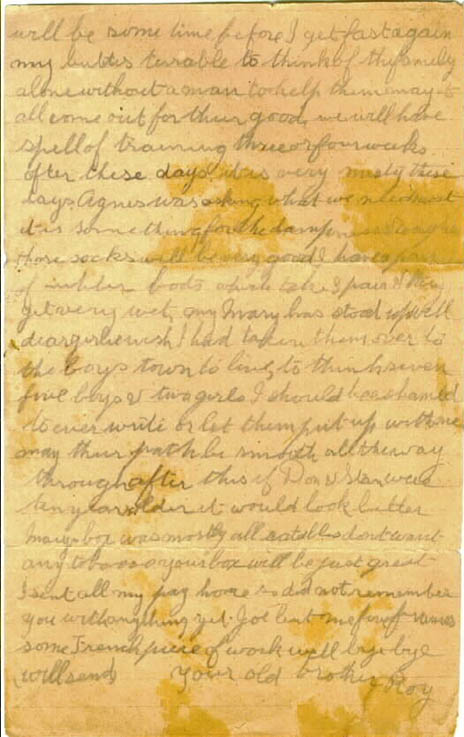 will be some time before I get fast again
my but its terable to think of the family
alone without a man to help them may it
all come out for their good, we will have
spell of training three or four weeks
after these days it is very misty these
days. Agnes was asking what we need most
it is something for the dampness
those socks will be very good I have a pair
of rubber boots which take 3 pair &
get very wet, my Mary has stood up well
dear girlie wish I had taken them over to
the boys town to live, to think seven
five boys & two girls I should be ashamed
to ever write or let them put up with me
may their path be smooth all the way
through after this if Don & Stan were
ten years older it would look better
Marys box was mostly all eatables dont want
any tobacco your box will be just great
I sent all my pay home so did not remember
you with anything yet. Joe lent me few
some French piece of work well bye bye
(will send) Your old brother Roy